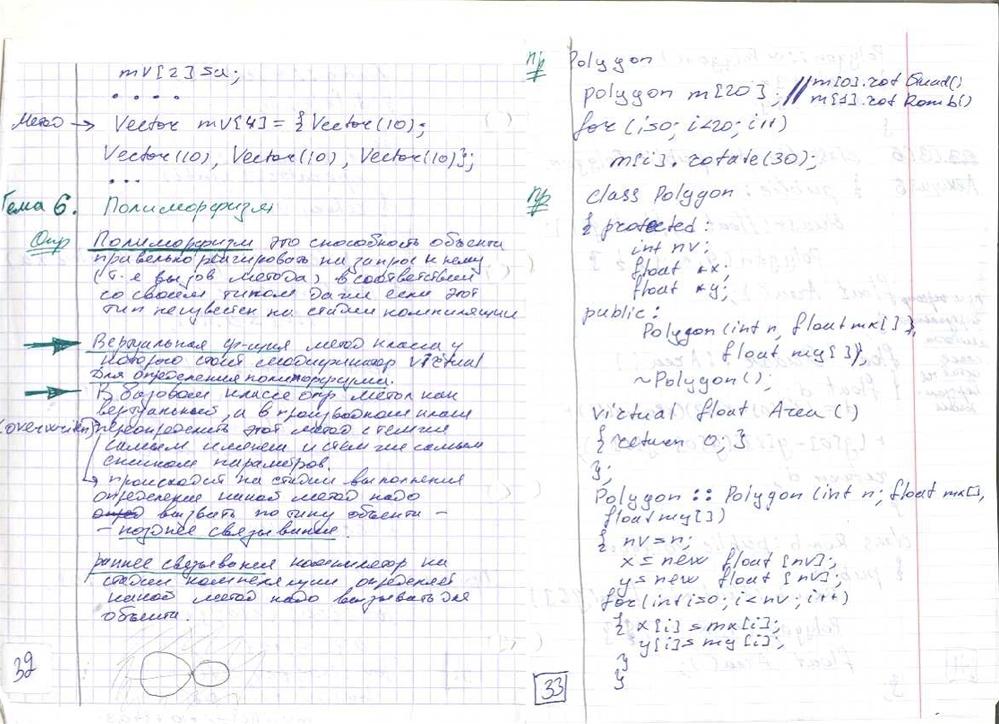 mV[2]=a;
. . . .
Метод → Vector mV[4] = { Vector(10);
Vector(10), Vector(10), Vector(10)};
...
Тема 6. Полиморфизм
Опр Полиморфизм это способность объекта
правельно реагировать на запрос к нему
(т.е вызов метода) в соответствии
со своим типом даже если этот
тип неизвестен на стадии компиляции
Вертуальная ф-ция метод класса у
которого стоит модификатор virtual
для определения полиморфизма.
В базовом классе опр метод как
вертуальный, а в производном классе
(overwriten) переопределить этот метод с тем же
самым именем и с тем же самым
списком параметров.
происходит на стадии выполнения
определение какой метод надо
вызвать по типу объекта –
– позднее связывание.
раннее связывание компилятор на
стадии компеляции определяет
какой метод надо вызывать для
объекта.
32
пр Polygon
polygon m[20]; // m[0].rot Quad()
m[1].rot Romb()
for (i=0; i<20; i++)
m[i].rotate(30);
пр class Polygon
{ protected:
int nv;
float *x;
float *y;
public:
Polygon (int n, float mx[],
float my[]);
~Polygon();
virtual float Area ()
{ return 0; }
};
Polygon :: Polygon (int n; float mx[],
float my[])
{ nv=n;
x= new float [nv];
y= new float [nv];
for(int i=0; i<nv; i++)
{ x[i]=mx[i];
y[i]=my[i];
}
}
33